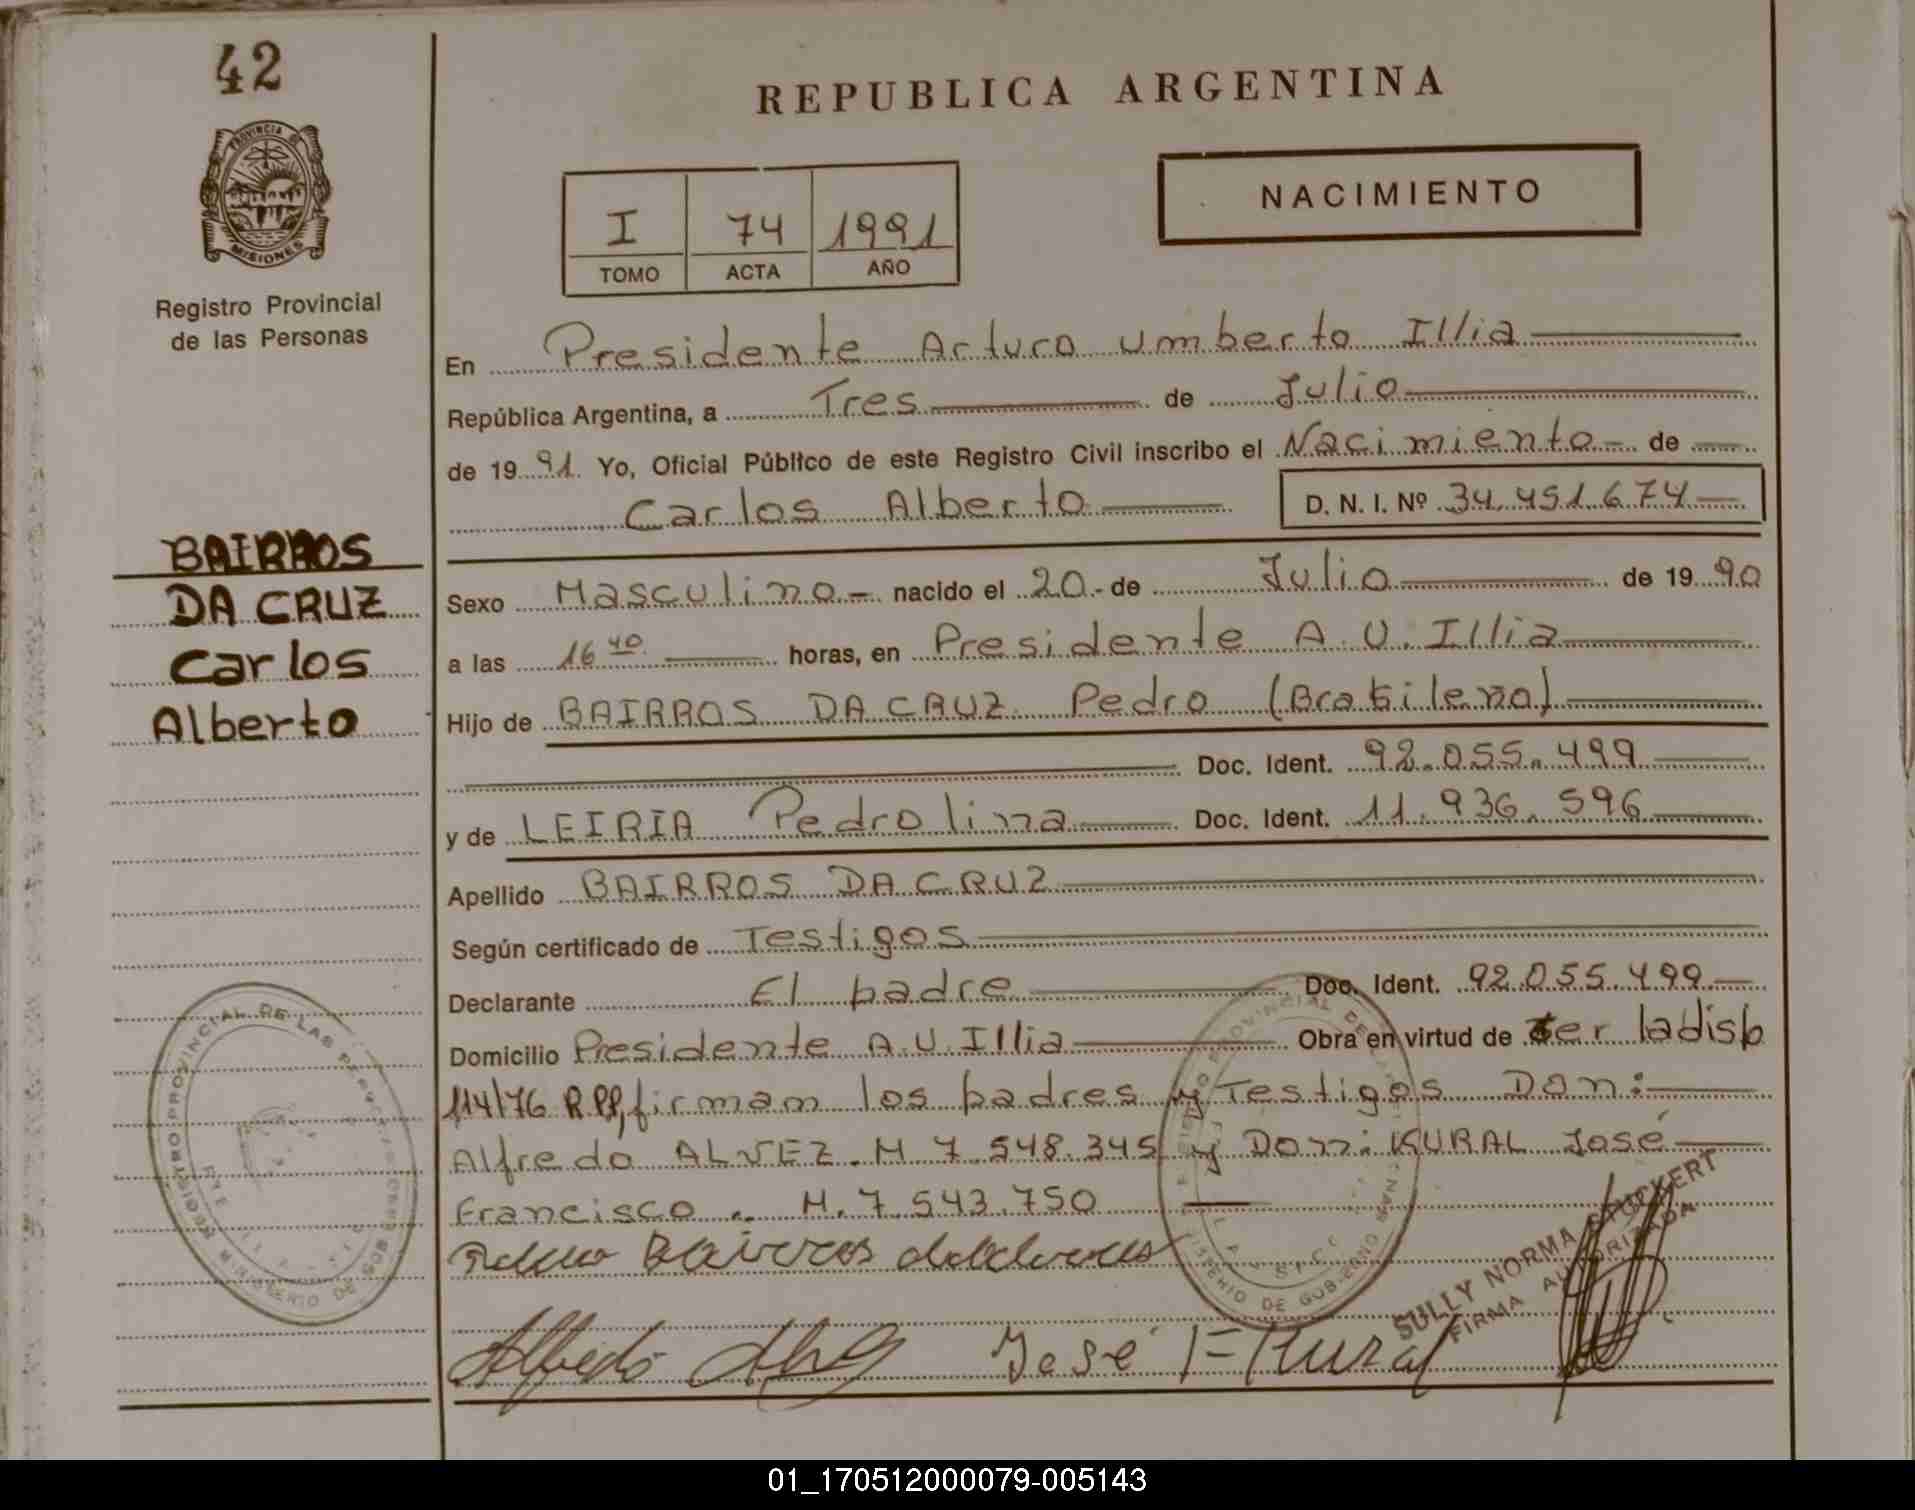 42
REPUBLICA ARGENTINA
PROVINCIA DE MISIONES
Registro Provincial
de las Personas
I 74 1991
TOMO ACTA AÑO
NACIMIENTO
En Presidente Arturo Umberto Illia
República Argentina, a Tres de Julio
de 1991. Yo, Oficial Público de este Registro Civil inscribo el Nacimiento de
Carlos Alberto D. N. I. Nº 34.451.674
BAIRROS
DA CRUZ
Carlos
Alberto
Sexo Masculino.- nacido el 20.- de Julio de 1990
a las 16 40 horas, en Presidente A. U. Illia
Hijo de BAIRROS DA CRUZ Pedro (Brasileño)
Doc. Ident. 92.055.499
y de LEIRIA Pedrolina Doc. Ident. 11.936.596
Apellido BAIRROS DA CRUZ
Según certificado de Testigos
Declarante El padre Doc. Ident. 92.055.499
Domicilio Presidente A.U. Illia Obra en virtud de Ser la disp
114/76 R.P.P, firman los padres y Testigos Don:
Alfredo ALVEZ. M 7.548.345 y Don: KURAL José
Francisco. M. 7.543.750
Bairros
Alfredo
José F Kural
SULLY NORMA STUCKERT
FIRMA AUTORIZADA
REGISTRO PROVINCIAL DE LAS PERSONAS
MINISTERIO DE GOBIERNO
01_170512000079-005143